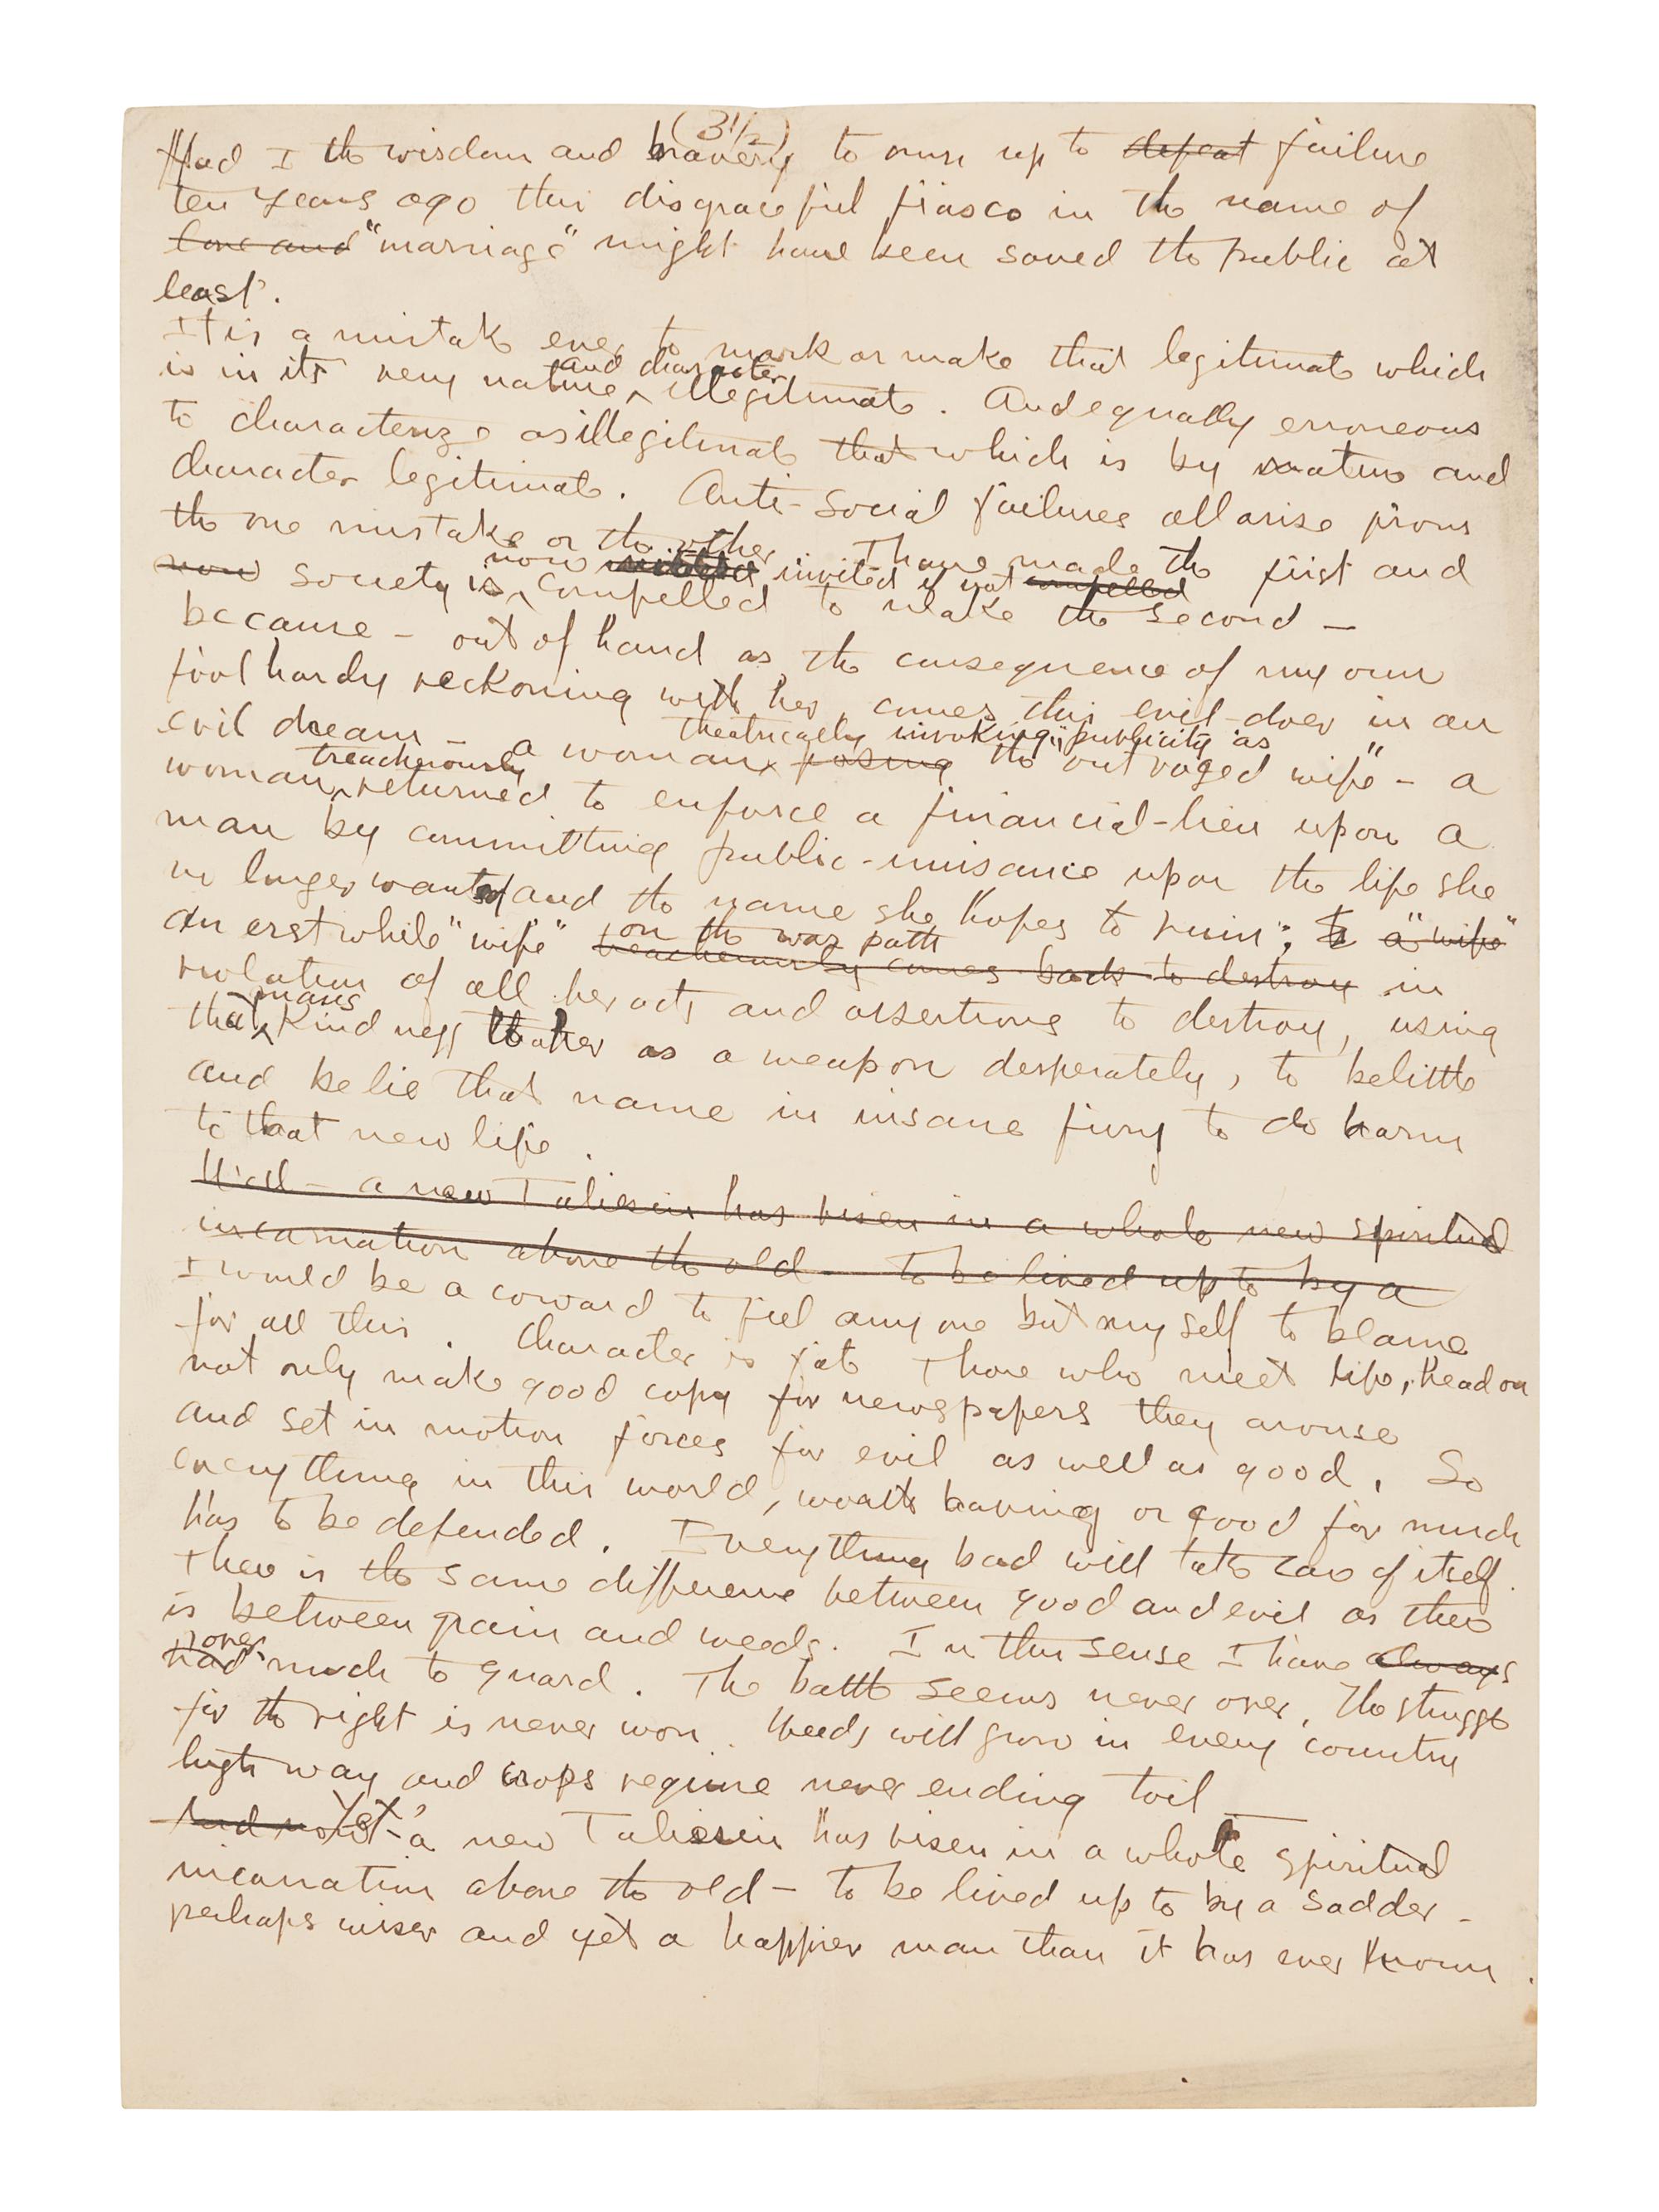 (3 1/2)
Had I the wisdom and bravery to own up to defeat failure
ten years ago this disgraceful fiasco in the name of
love and "marriage" might have been saved the public at
least.
It is a mistake ever to mark or make that legitimate which
and character
is in its very nature illegitimate. And equally erroneous
to characterize as illegitimate that which is by nature and
character legitimate. Anti-social failures all arise from
the one mistake or the other. I have made the first and
now invited if not compelled
now society is compelled to make the second —
because — out of hand as the consequence of my own
fool hardy reckoning with her, comes this evil-doer in an
theatrically invoking publicity as
evil dream — a woman posing the "outraged wife" — a
treacherously
woman returned to enforce a financial-lien upon a
man by committing public-nuisance upon the life she
no longer wanted and the name she hopes to ruin; a "wife"
on the war path
an erstwhile "wife" treacherously comes back to destroy in
violation of all her acts and assertions to destroy, using
mans
that kindness to her as a weapon desperately, to belittle
and belie that name in insane fury to do harm
to that new life.
Well — a new Taliesin has risen in a whole new spiritual
incarnation above the old — to be lived up to by a
I would be a coward to feel any one but my self to blame
for all this. Character is fate Those who meet life, head on
not only make good copy for newspapers they arouse
and set in motion forces for evil as well as good. So
everything in this world, worth having or good for much
has to be defended. Everything bad will take care of itself.
There is the same difference between good and evil as there
is between grain and weeds. In this sense I have always
over
had much to guard. The battle seems never over, The struggle
for the right is never won. Weeds will grow in every country
high way and crops require never ending toil —
Yet
And now — a new Taliesin has risen in a whole spiritual
incarnation above the old — to be lived up to by a sadder —
perhaps wiser and yet a happier man than it has ever known.